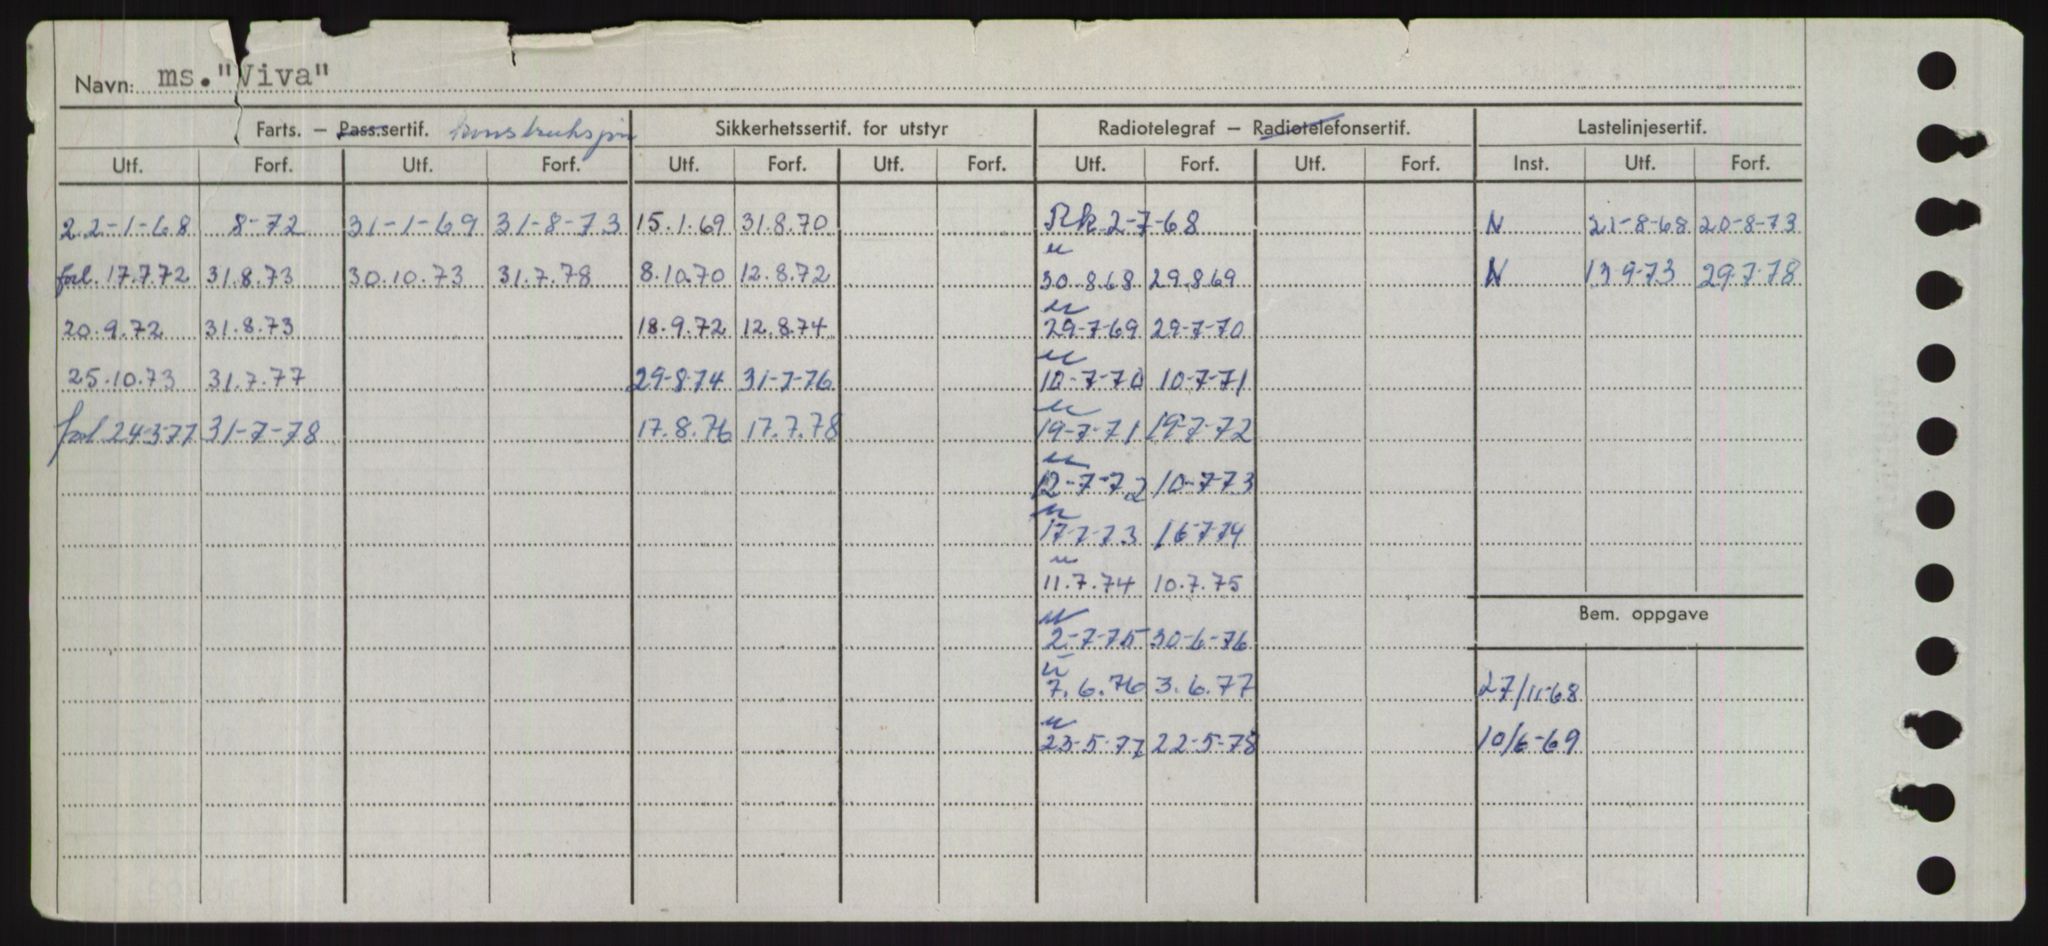 Navn: ms. "Viva"
Farts. – Pass.sertif. konstruksjon Sikkerhetssertif. for utstyr Radiotelegraf – Radiotelefonsertif. Lastelinjesertif.
Utf. Forf. Utf. Forf. Utf. Forf. Utf. Forf. Utf. Forf. Utf. Forf. Inst. Utf. Forf.
22-1-68 8-72 31-1-69 31-8-73 15.1.69 31.8.70 Rk 2-7-68 N 21-8-68 20-8-73
"
forl. 17.7.72 31.8.73 30.10.73 31.7.78 8.10.70 12.8.72 30.8.68 29.8.69 N 13-9-73 29-7-78
"
20.9.72 31.8.73 18.9.72 12.8.74 29-7-69 29-7-70
"
25.10.73 31.7.77 29-8-74 31-7-76 10-7-70 10-7-71
"
forl. 24-3-77 31-7-78 17.8.76 17.7.78 19-7-71 19-7-72
"
12-7-72 10-7-73
"
17-7-73 16-7-74
"
11.7.74 10.7.75
Bem. oppgave
"
2-7-75 30-6-76
"
7.6.76 3.6.77 27/11-68
"
23-5-77 22-5-78 10/6-69